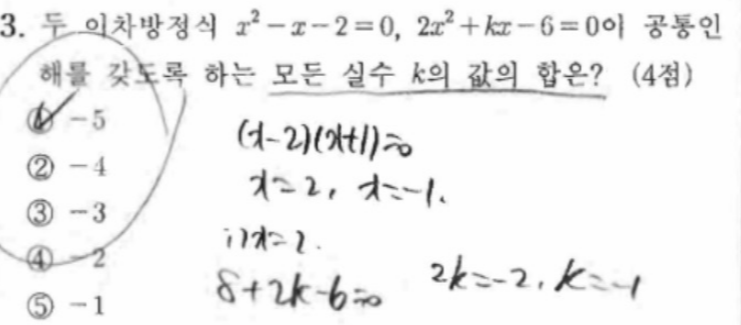 3. 두 이차방정식 x²-x-2=0, 2x²+kx-6=0이 공통인
해를 갖도록 하는 모든 실수 k의 값의 합은? (4점)
① -5
② -4
③ -3
④ -2
⑤ -1
(x-2)(x+1)=0
x=2, x=-1.
i) x=2.
8+2k-6=0
2k=-2, k=-1